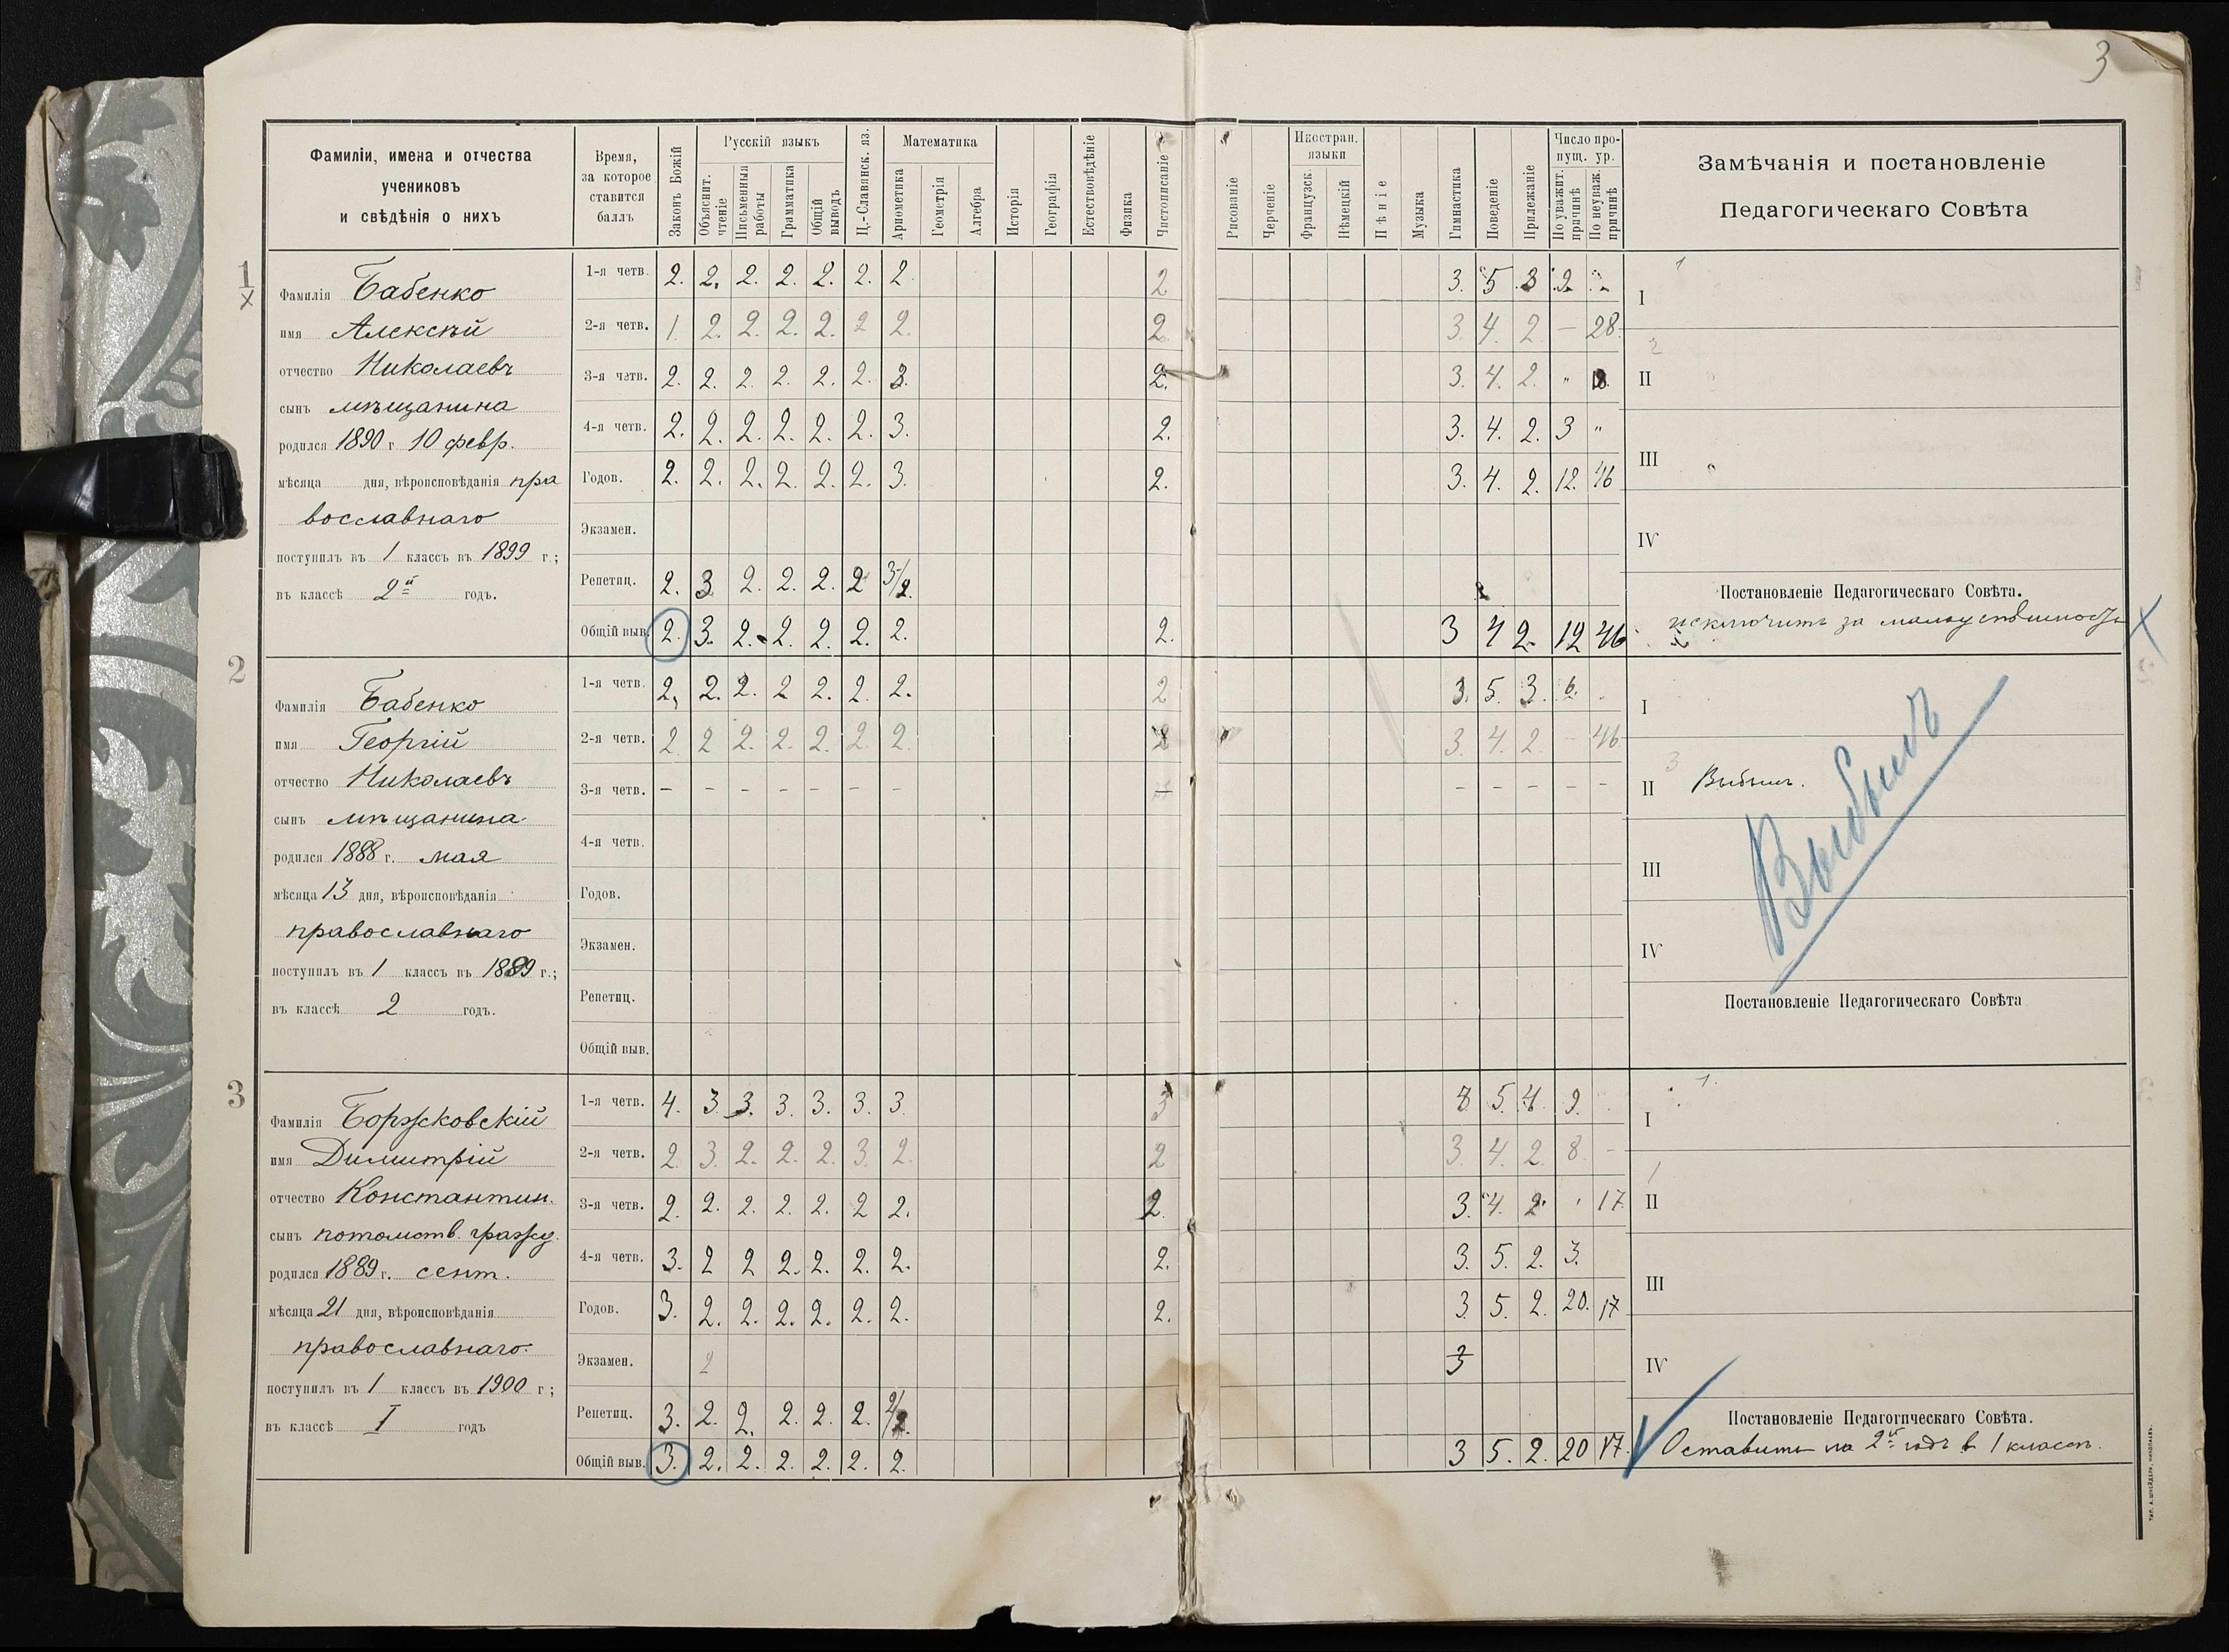 3
Фамиліи, имена и отчества
учениковъ
и свѣдѣнія о нихъ
Время,
за которое
ставится
баллъ
Законъ Божій
Русскій языкъ
Объяснит. чтеніе
Письменныя работы
Грамматика
Общій выводъ
Ц.-Славянск. яз.
Математика
Арифметика
Геометрія
Алгебра
Исторія
Географія
Естествовѣдѣніе
Физика
Чистописаніе
Рисованіе
Черченіе
Иностран. языки
Французск.
Нѣмецкій
Пѣніе
Музыка
Гимнастика
Поведеніе
Прилежаніе
Число пропущ. ур.
По уважит. причинѣ
По неуваж. причинѣ
Замѣчанія и постановленіе
Педагогическаго Совѣта
1
×
Фамилія Бабенко
имя Алексѣй
отчество Николаевъ
сынъ мѣщанина
родился 1890 г 10 февр.
мѣсяца дня, вѣроисповѣданія пра
вославнаго
поступилъ въ 1 классъ въ 1899 г.;
въ классѣ 2й годъ.
1-я четв. 2. 2. 2. 2. 2. 2. 2. 2 3. 5 3 2
2-я четв. 1 2. 2. 2. 2. 2 2. 2. 3. 4. 2. — 28.
3-я четв. 2. 2. 2. 2. 2. 2. 3. 2. 3. 4. 2. "
4-я четв. 2. 2. 2. 2. 2. 2. 3. 2. 3. 4. 2. 3 "
Годов. 2. 2. 2. 2. 2. 2. 3. 2. 3. 4. 2. 12. 46
Экзамен.
Репетиц. 2. 3. 2. 2. 2. 2 3/2.
Общій выв. 2. 3. 2. 2. 2. 2. 2. 2. 3 4 2. 12 46
I
II
III
IV
Постановленіе Педагогическаго Совѣта.
исключить за малоуспѣшность
2
Фамилія Бабенко
имя Георгій
отчество Николаевъ
сынъ мѣщанина
родился 1888 г. мая
мѣсяца 13 дня, вѣроисповѣданія
православнаго
поступилъ въ 1 классъ въ 1899 г.;
въ классѣ 2 годъ.
1-я четв. 2, 2. 2. 2 2. 2. 2. 2 3. 5. 3. 6.
2-я четв. 2 2 2. 2. 2. 2. 2. 2 3. 4. 2. — 46
3-я четв. – – – – – – – — – – – – –
4-я четв.
Годов.
Экзамен.
Репетиц.
Общій выв.
I
II Выбылъ.
III
IV
Выбылъ
Постановленіе Педагогическаго Совѣта
3
Фамилія Боржковскій
имя Димитрій
отчество Константин.
сынъ потомств. гражд.
родился 1889 г. сент.
мѣсяца 21 дня, вѣроисповѣданія
православнаго.
поступилъ въ 1 классъ въ 1900 г;
въ классѣ I годъ
1-я четв. 4. 3. 3. 3. 3. 3. 3. 3 3 5. 4. 9.
2-я четв. 2. 3. 2. 2. 2. 3. 2. 2 3. 4. 2. 8. –
3-я четв. 2. 2. 2. 2. 2. 2 2. 2. 3. 4. 2. 17.
4-я четв. 3. 2 2 2. 2. 2. 2. 2. 3. 5. 2. 3.
Годов. 3. 2. 2. 2. 2. 2. 2. 2. 3. 5. 2. 20. 17
Экзамен. 2
Репетиц. 3. 2. 2. 2. 2. 2. 2/2.
Общій выв. 3. 2. 2. 2. 2. 2. 2. 3 5. 2. 20 17.
I
II
III
IV
Постановленіе Педагогическаго Совѣта.
Оставить на 2й годъ в 1 классѣ.